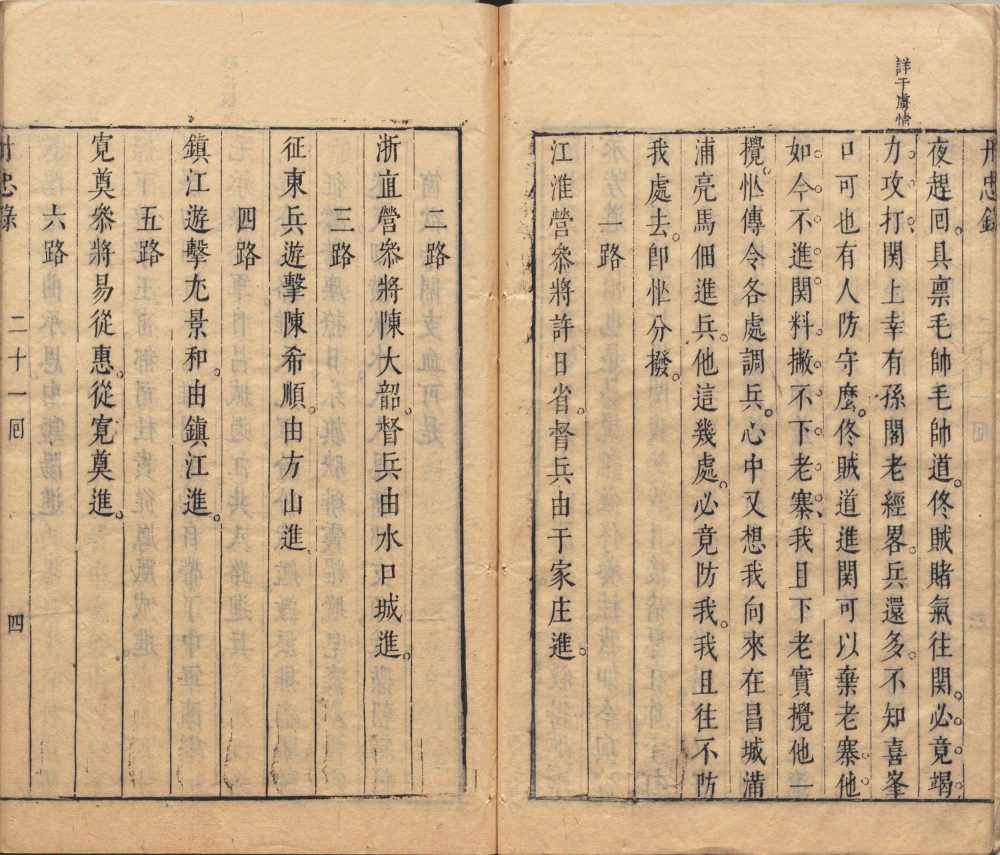 詳于虜情
丹忠錄
夜趕囘。具禀毛帥毛帥道。佟賊賭氣往関。必竟竭
力攻打。関上幸有孫閣老經畧。兵還多。不知喜峯
口可也有人防守麽。佟賊道進関可以棄老寨。他
如今不進関料撇不下老寨。我目下老實攪他一
攪。忙傳令各處調兵。心中又想我向來在昌城滿
浦亮馬佃進兵。他這幾處。必竟防我。我且往不防
我處去。卽忙分撥。
一路
江淮營叅將許日省。督兵由于家庄進。
二路
浙直營叅將陳大韶。督兵由水口城進。
三路
征東兵遊擊陳希順。由方山進
四路
鎮江遊擊尤景和。由鎮江進。
五路
寛奠叅將易從惠。從寛奠進。
六路
丹忠錄
二十一囘
四